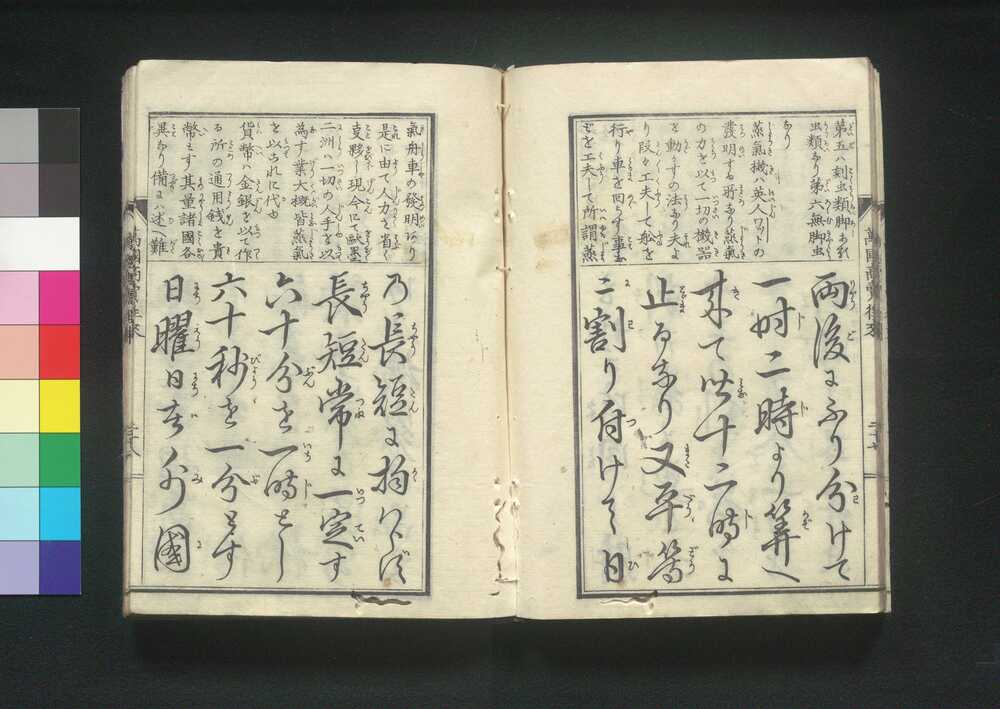 第五ハ刻虫類脚あき
虫類なり第六無脚虫
なり
蒸氣機ハ英人ワットの
發明する所なり蒸氣
の力を以て一切の機器
を動すの法なり夫よ
り段々工夫して船を
行り車を回らす事
を工夫して所謂蒸
両度にふり分けて
一时二時より算へ
来て唯十二時に
止るなり又平等
ニ割り付けて日
氣舟車の發明あり
是に由て人力を省く
夥し現今にて歐墨
二洲ハ一切の人手を以
為す業大概皆蒸氣
を以てこれに代ゆ
貨幣ハ金銀を以て作
る所の通用錢を貴
幣とす其量諸國各
異なり備にハ述へ難
乃長短に拘ハらす
長短常に一定す
六十分を一時とし
六十秒を一分とす
日曜日は外國